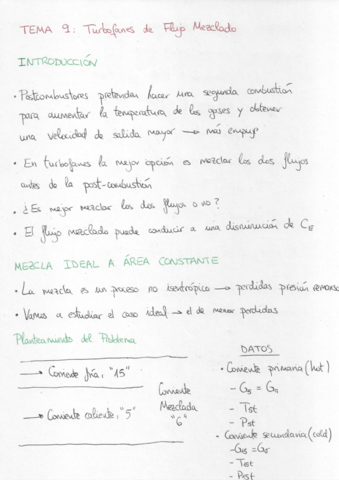 TEMA 9: Turbofanes de Flujo Mezclado
INTRODUCCIÓN
· Postcombustores pretendan hacer una segunda combustión
para aumentar la temperatura de los gases y obtener
una velocidad de salida mayor → más empuje
· En turbofanes la mejor opción es mezclar los dos flujos
antes de la post-combustión
· ¿Es mejor mezclar los dos flujos o no?
· El flujo mezclado puede conducir a una disminución de CE
MEZCLA IDEAL A ÁREA CONSTANTE
· La mezcla es un proceso no isentrópico → perdidas presión remanso
· Vamos a estudiar el caso ideal → el de menor perdidas
Planteamiento del Problema
DATOS
→ Corriente fría, "15"
→ Corriente caliente, "5"
Corriente
Mezclada
"6"
· Corriente primaria (hot)
- G5 =
- T5t
- P5t
· Corriente secundaria (cold)
- G15 =
- T15t
- P15t